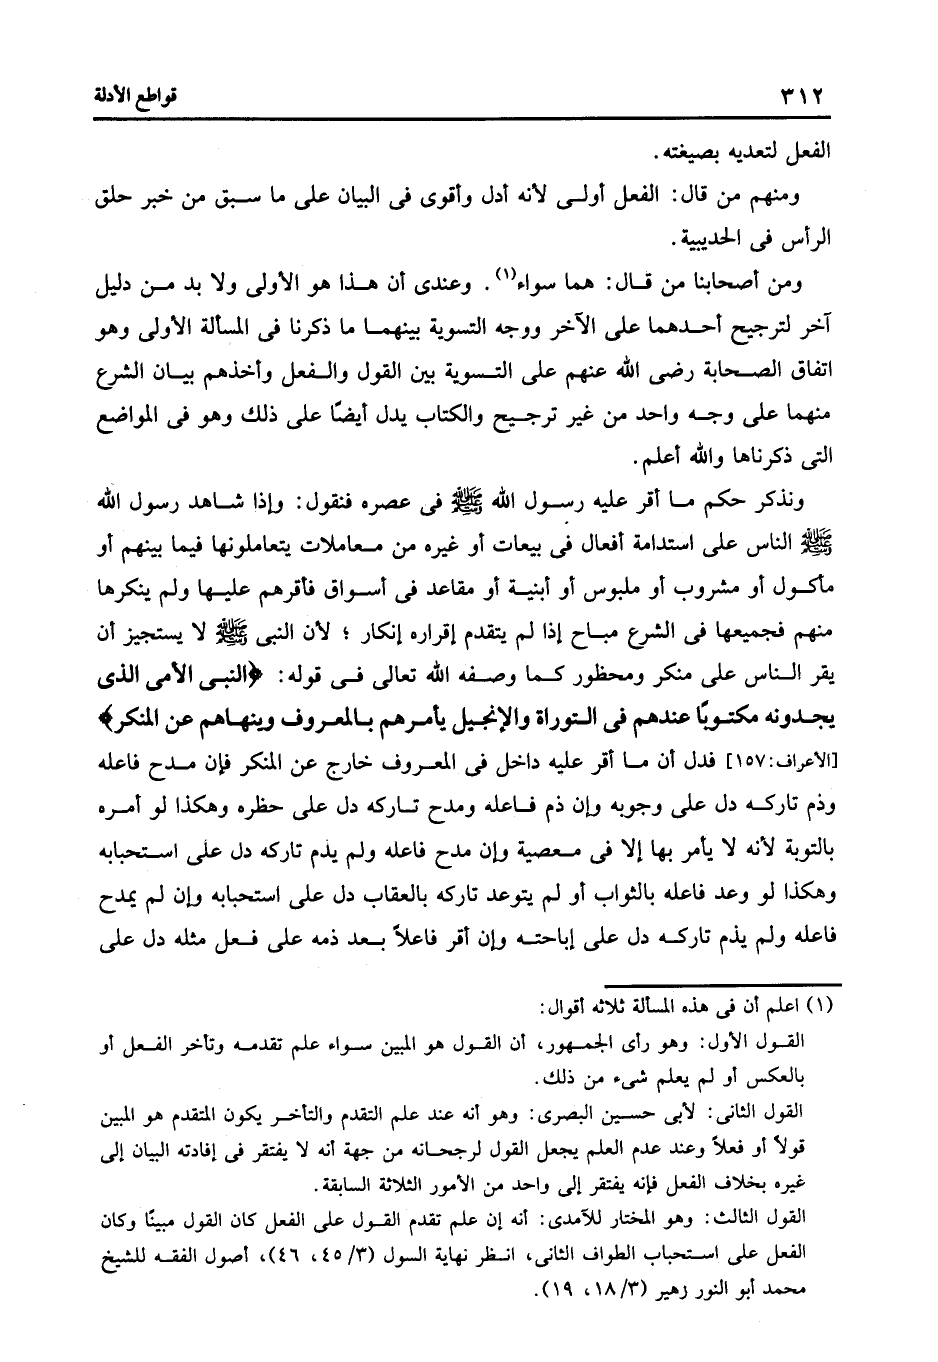 ٣١٢ قواطع الأدلة
الفعل لتعديه بصيغته.
ومنهم من قال: الفعل أولى لأنه أدل وأقوى فى البيان على ما سبق من خبر حلق
الرأس فى الحديبية.
ومن أصحابنا من قال: هما سواء(١). وعندى أن هذا هو الأولى ولا بد من دليل
آخر لترجيح أحدهما على الآخر ووجه التسوية بينهما ما ذكرنا فى المسألة الأولى وهو
اتفاق الصحابة رضى الله عنهم على التسوية بين القول والفعل وأخذهم بيان الشرع
منهما على وجه واحد من غير ترجيح والكتاب يدل أيضًا على ذلك وهو فى المواضع
التى ذكرناها والله أعلم.
ونذكر حكم ما أقر عليه رسول الله ﷺ فى عصره فنقول: وإذا شاهد رسول الله
ﷺ الناس على استدامة أفعال فى بيعات أو غيره من معاملات يتعاملونها فيما بينهم أو
مأكول أو مشروب أو ملبوس أو أبنية أو مقاعد فى أسواق فأقرهم عليها ولم ينكرها
منهم فجميعها فى الشرع مباح إذا لم يتقدم إقراره إنكار ؛ لأن النبى ﷺ لا يستجيز أن
يقر الناس على منكر ومحظور كما وصفه الله تعالى فى قوله: ﴿النبى الأمى الذى
يجدونه مكتوبًا عندهم فى التوراة والإنجيل يأمرهم بالمعروف وينهاهم عن المنكر﴾
[الأعراف:١٥٧] فدل أن ما أقر عليه داخل فى المعروف خارج عن المنكر فإن مدح فاعله
وذم تاركه دل على وجوبه وإن ذم فاعله ومدح تاركه دل على حظره وهكذا لو أمره
بالتوبة لأنه لا يأمر بها إلا فى معصية وإن مدح فاعله ولم يذم تاركه دل على استحبابه
وهكذا لو وعد فاعله بالثواب أو لم يتوعد تاركه بالعقاب دل على استحبابه وإن لم يمدح
فاعله ولم يذم تاركه دل على إباحته وإن أقر فاعلاً بعد ذمه على فعل مثله دل على
(١) اعلم أن فى هذه المسألة ثلاثه أقوال:
القول الأول: وهو رأى الجمهور، أن القول هو المبين سواء علم تقدمه وتأخر الفعل أو
بالعكس أو لم يعلم شىء من ذلك.
القول الثانى: لأبى حسين البصرى: وهو أنه عند علم التقدم والتأخر يكون المتقدم هو المبين
قولاً أو فعلاً وعند عدم العلم يجعل القول لرجحانه من جهة أنه لا يفتقر فى إفادته البيان إلى
غيره بخلاف الفعل فإنه يفتقر إلى واحد من الأمور الثلاثة السابقة.
القول الثالث: وهو المختار للآمدى: أنه إن علم تقدم القول على الفعل كان القول مبينًا وكان
الفعل على استحباب الطواف الثانى، انظر نهاية السول (٤٥/٣، ٤٦)، أصول الفقه للشيخ
محمد أبو النور زهير (١٨/٣، ١٩).